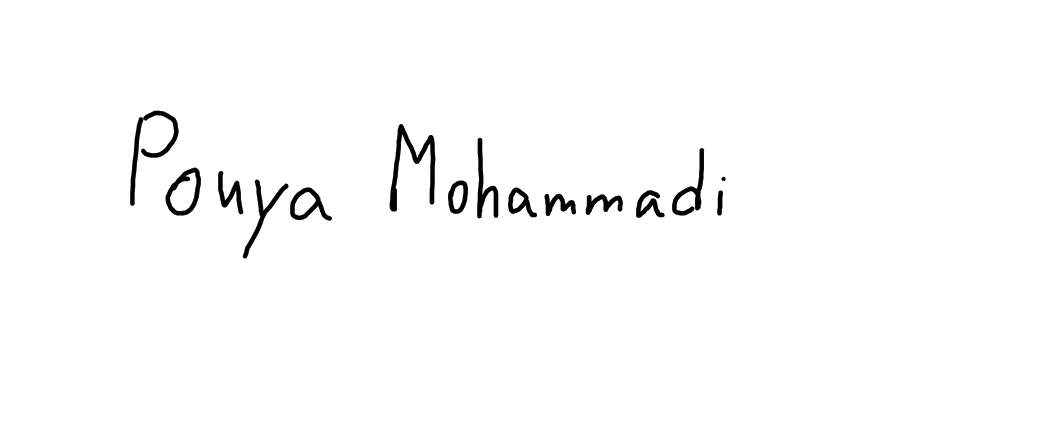 Pouya Mohammadi